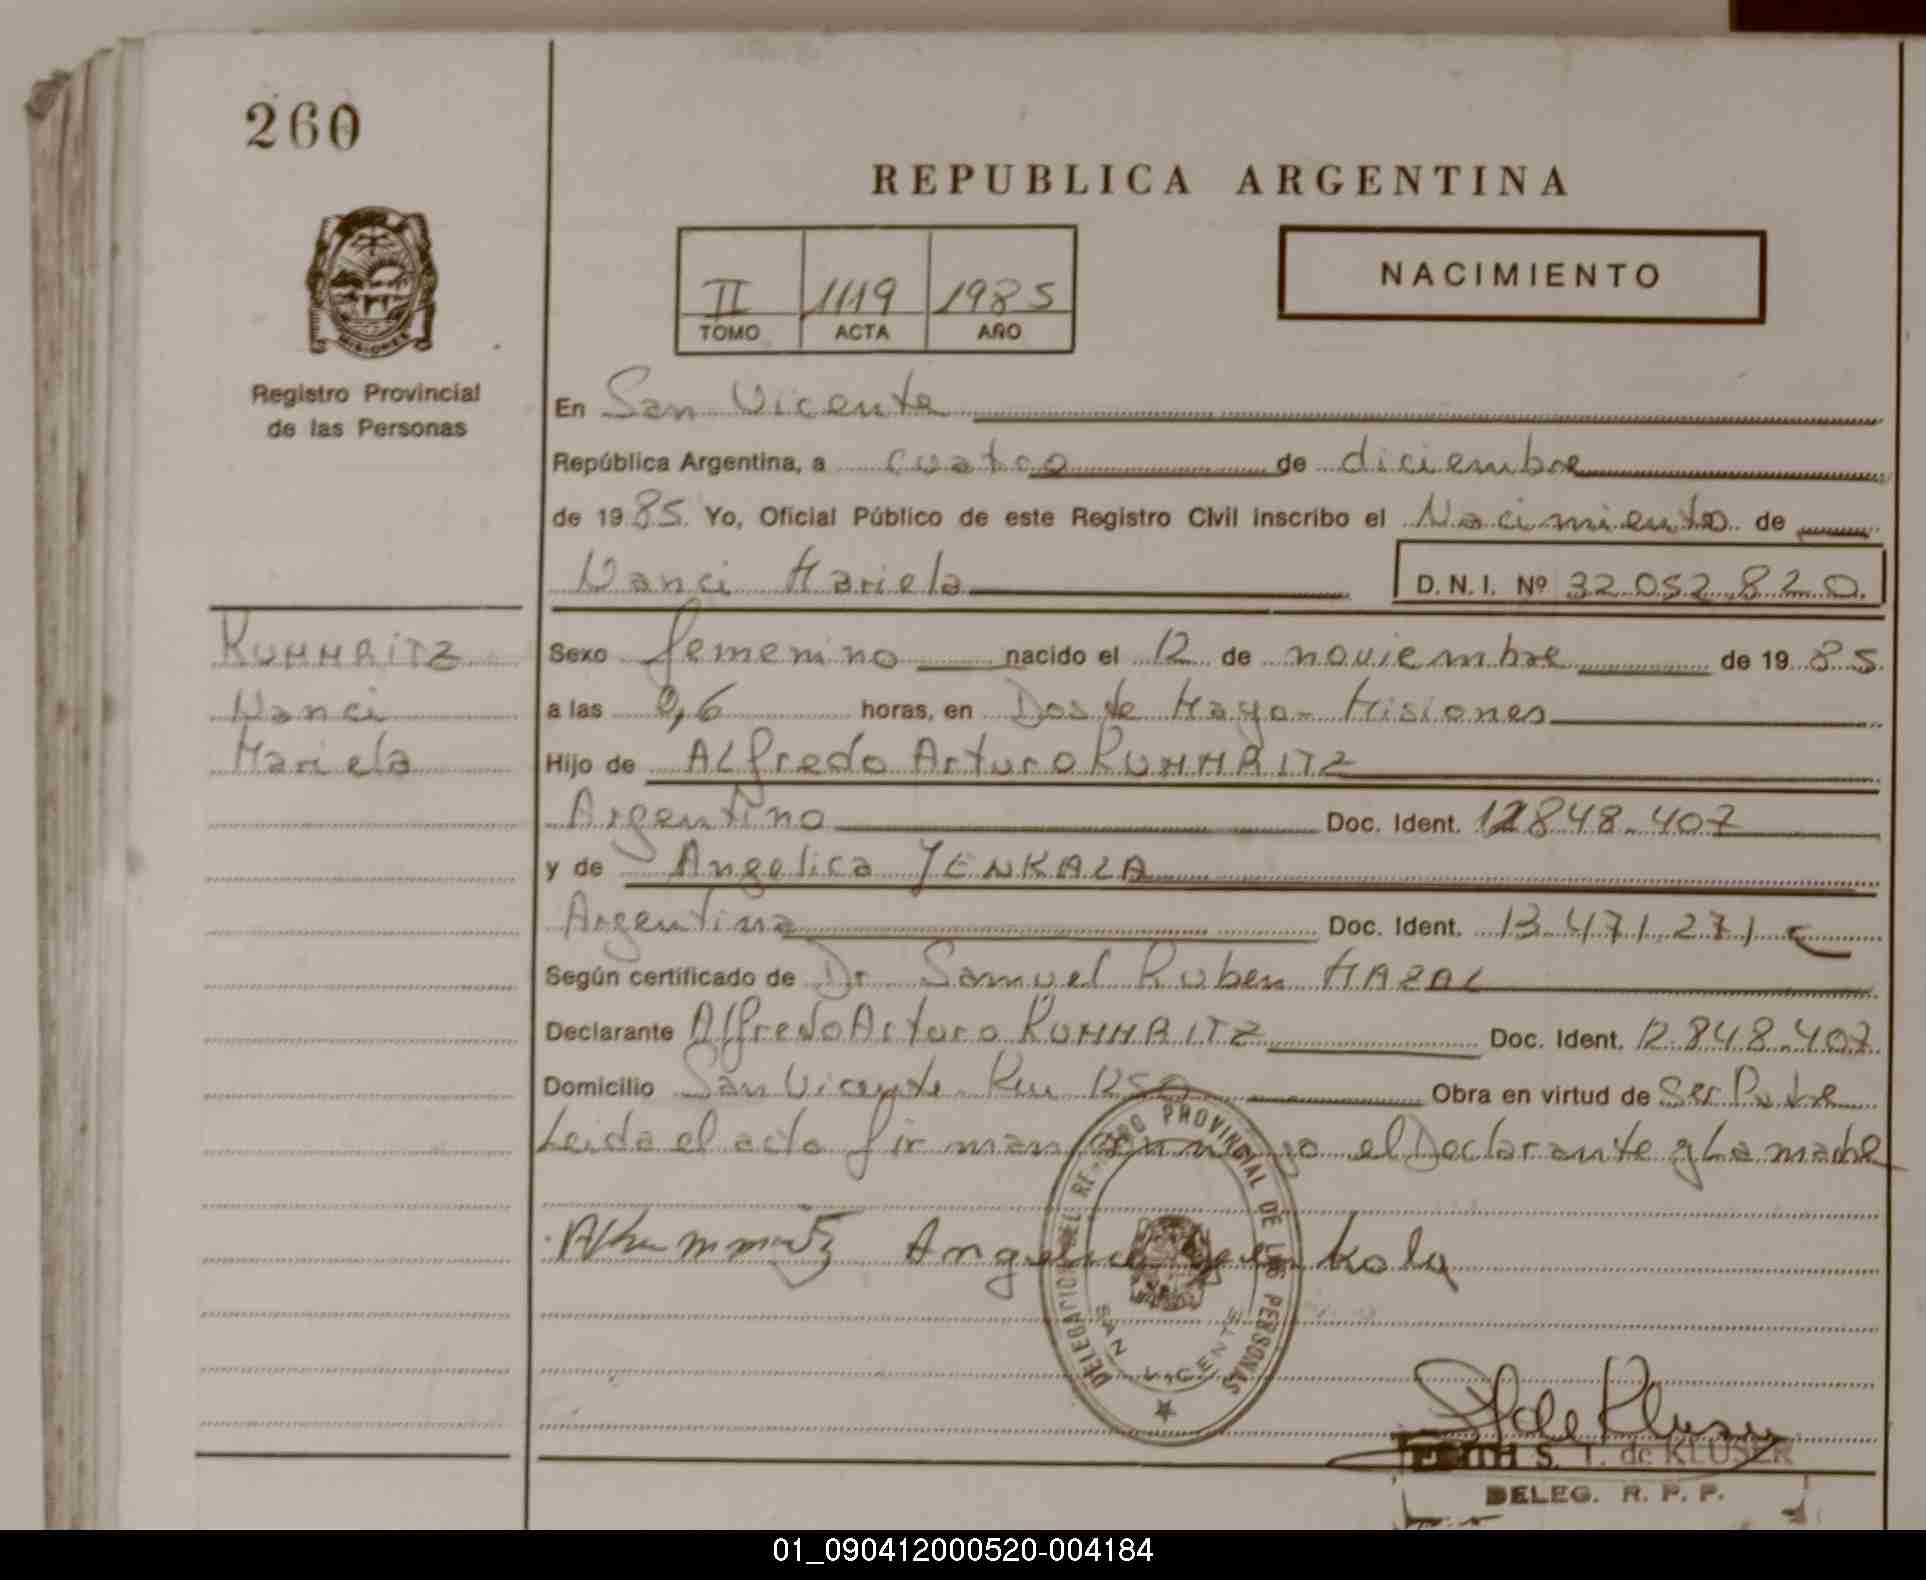 260
REPUBLICA ARGENTINA
MISIONES
Registro Provincial
de las Personas
II 1119 1985
TOMO ACTA AÑO
NACIMIENTO
En San Vicente
República Argentina, a cuatro de diciembre
de 1985. Yo, Oficial Público de este Registro Civil inscribo el Nacimiento de
Nanci Mariela D.N.I. Nº 32.052.820.
KUMMRITZ
Nanci
Mariela
Sexo femenino nacido el 12 de noviembre de 1985.
a las 0,6 horas, en Dos de Mayo - Misiones
Hijo de ALfredo Arturo KUMMRITZ
Argentino Doc. Ident. 12848.407
y de Angelica YENKALA
Argentina Doc. Ident. 13.471.271
Según certificado de Dr Samuel Ruben MAZAL
Declarante Alfredo Arturo KUMMRITZ Doc. Ident. 12.848.407
Domicilio San Vicente Km 1250 Obra en virtud de Ser Padre
Leida el acta firman conmigo el Declarante y La madre
AKummritz Angelica Yenkala
DELEGACION DEL REGISTRO PROVINCIAL DE LAS PERSONAS
SAN VICENTE
S. T. de KLUSER
DELEG. R. P. P.
01_090412000520-004184